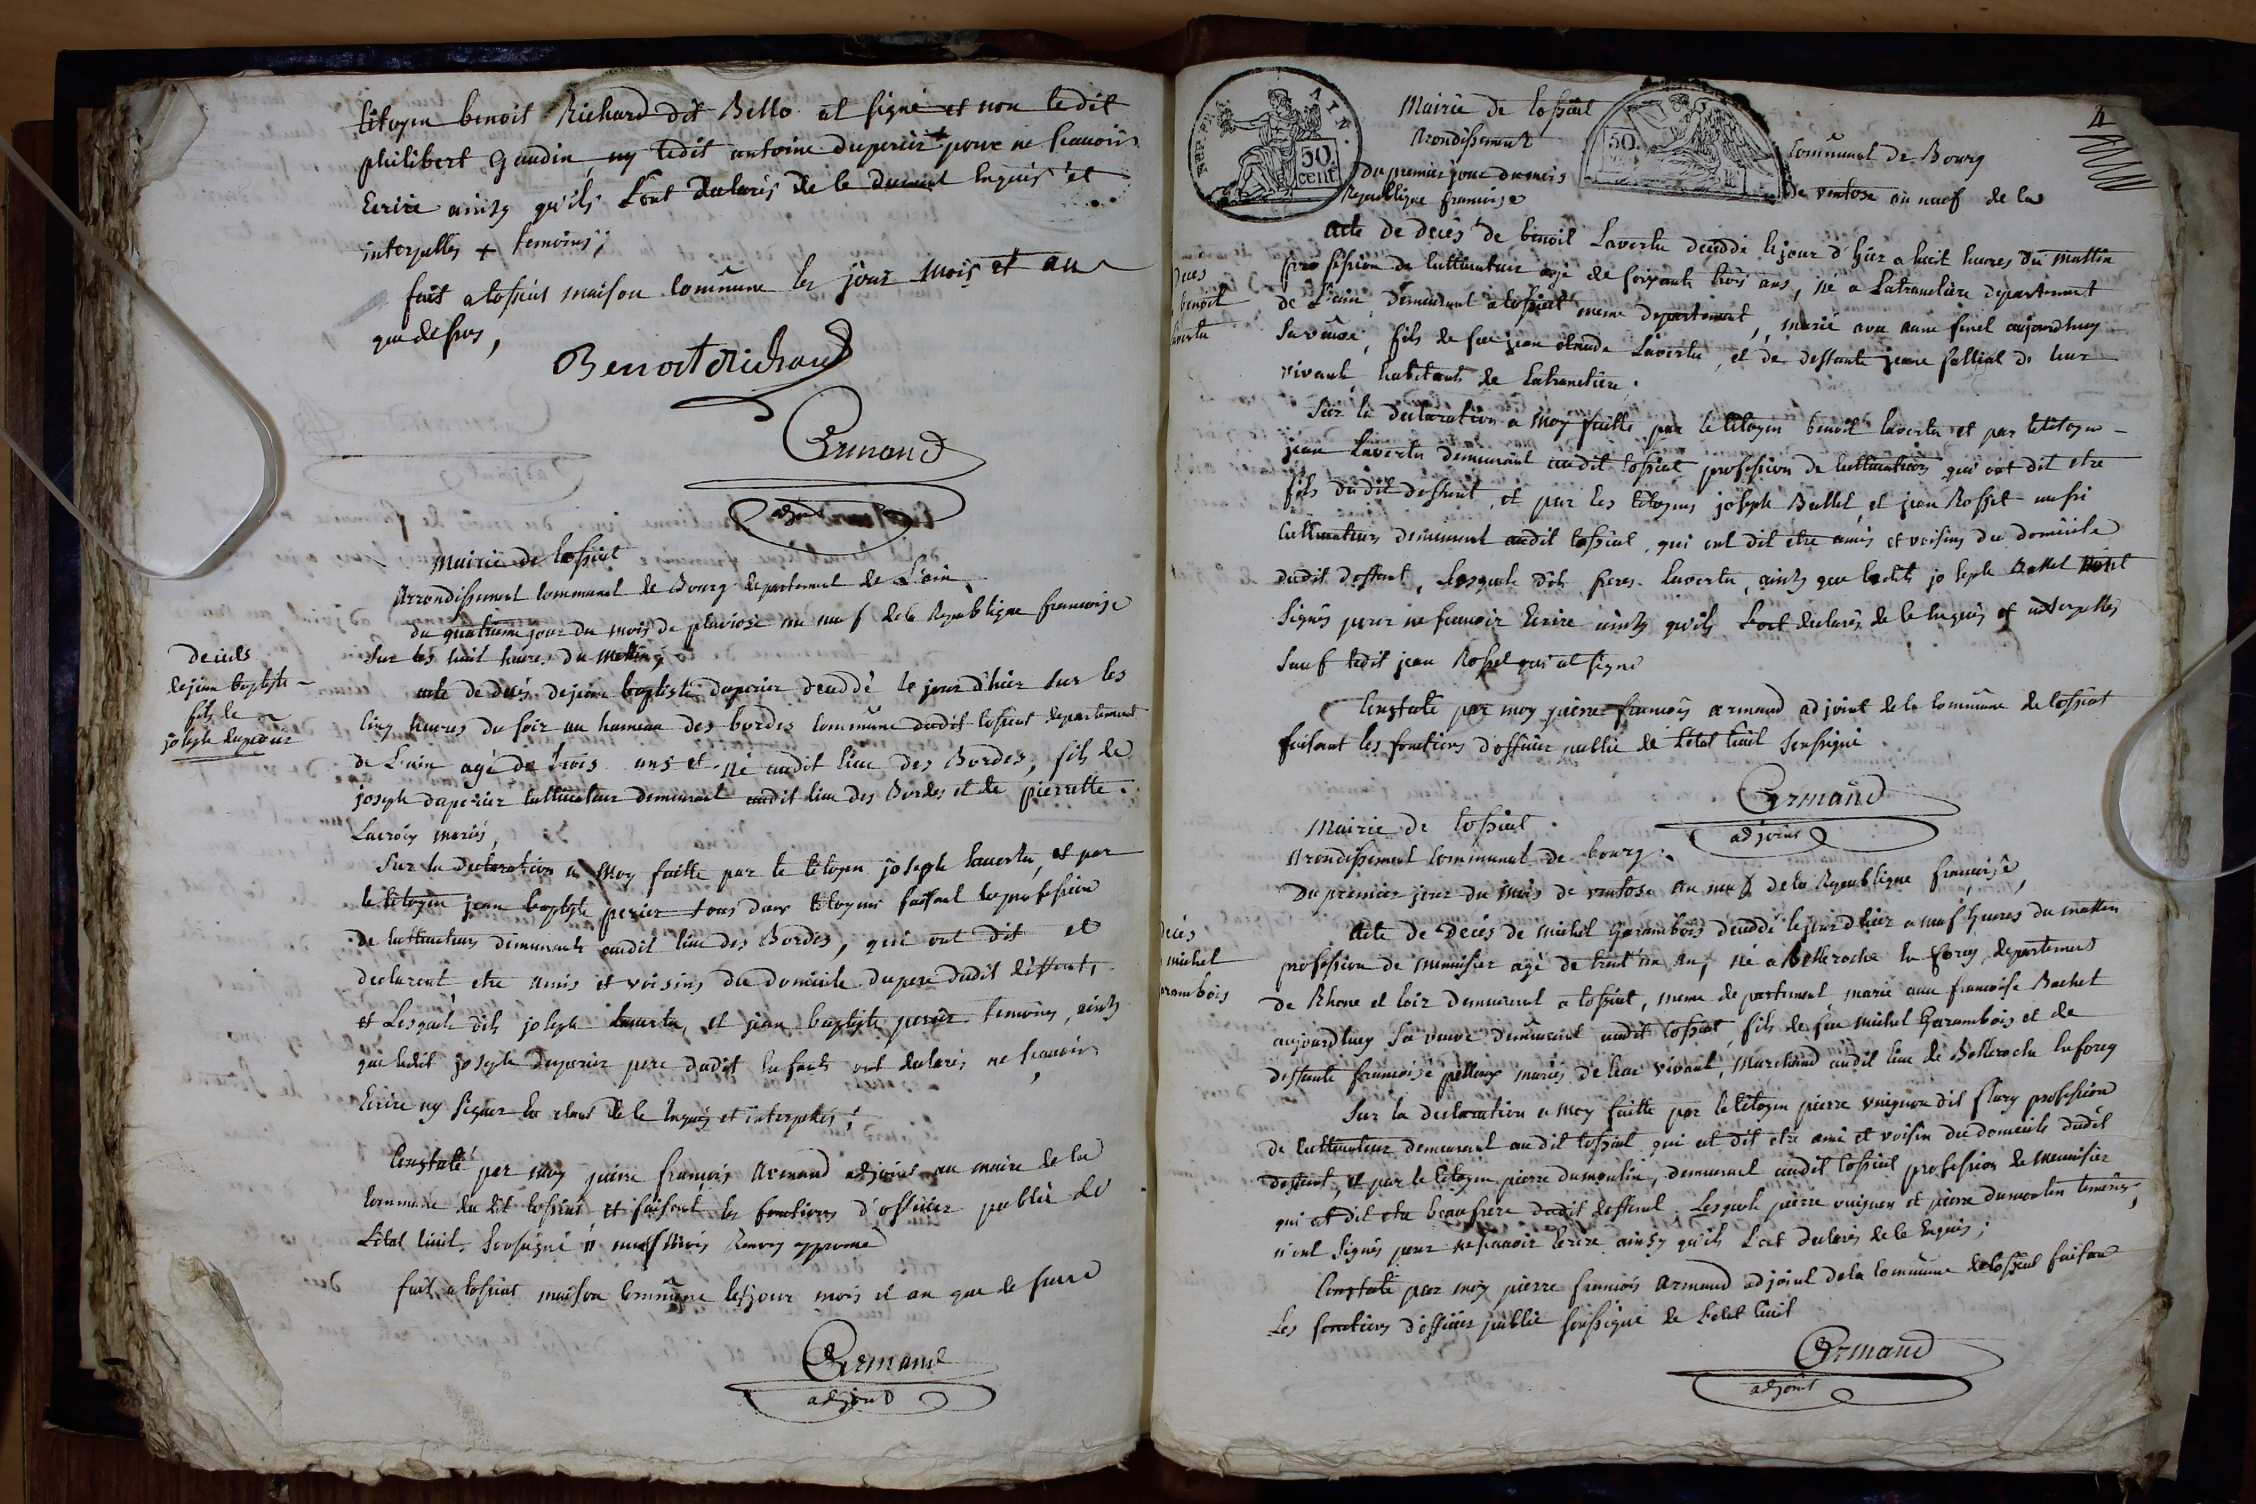 Citoyen benoit Richard dit Bello at signé et non ledit
philibert Gaudin, ny ledit antoine duperier + pour ne scavoir
Ecrire ainsy qu'ils L'ont declarés de le dument Enquis et
interpellés + temoins;
fait a tossiat maison commune les jour mois et an
que dessus,
Benoit Richard
Armand
adjoint
Mairie de tossiat
Arrondissement communal de Bourg departement de L'ain
du quatrieme jour du mois de pluviose an neuf de la Republique francoise
Sur les huit heures du mattin;
decés
de jean baptiste
fils de
joseph duperier
acte de decés de jean baptiste duperier decedé le jour d'hier sur les
cinq heures du soir au hameau des bordes commune dudit tossiat departement
de L'ain agé de trois ans et né audit lieu des Bordes, fils de
joseph duperier cultivateur demeurant audit lieu des Bordes et de pierrette
Lacroix mariés,
Sur la declaration a Moy faitte par le Citoyen joseph lavertu, et par
le Citoyen jean baptiste perier tous deux Citoyens faisant la profession
de cultivateurs demeurants audit lieu des Bordes, qui ont dit et
declarent etre amis et voisins du domicile du pere dudit deffunt,
et Lesquels dits joseph lavertu, et jean baptiste perier temoins, ainsy
que ledit joseph duperier pere dudit Enfant ont declarés ne scavoir
Ecrire ny signer de le Enquis et interpellés;
Constaté par moy pierre francois Armand adjoint au maire de la
commune du dit tossiat et faisant les fonctions d'officier public de
L'etat Civil Soussigné neuf Mois Renvoy approuvé
fait a tossiat maison commune les jour mois et an que de surre
Armand
adjoint
4
REP. FRA
50
cent.
50
Mairie de tossiat
Arondissement Communal de Bourg
Du premier jour du mois de ventose an neuf de la
Republique francoise
Deces
benoit
lavertu
Acte de decés de benoit Lavertu decedé le jour d'hier a huit heures Du mattin
profission de cultivateur agé de soixante trois ans, né a Latranclière departement
de L'ain, demeurant a tossiat meme departement, marié avec anne finel aujourdhuy
sa veuve, fils de feu jean claude Lavertu, et de deffunte jeanne de leur
vivants habitants de Latranclière.
Sur la declaration a Moy faitte par le Citoyen benoit lavertu et par le Citoyen
jean Lavertu demeurant audit tossiat profession de cultivateurs qui ont dit etre
fils dudit deffunt, et par les Citoyens joseph Buttel, et jean Rosset aussi
Cultivateurs demeurant audit tossiat, qui ont dit etre amis et voisins du domicile
dudit deffunt, Lesquels dits freres Lavertu, ainsy que ledit joseph Buttel n'ont
signés pour ne scavoir Ecrire ainsy qu'ils L'ont declarés de le Enquis et interpellés
Sauf ledit jean Rosset qui at signé
Constaté par moy pierre francois armand adjoint de la commune de tossiat
faisant les fonctions d'officier public de L'etat Civil Soussigné
Armand
adjoint
Mairie de tossiat
Arondissement communal de bourg
Du premier jour du mois de ventose an neuf de la Republique francoise,
deces
michel
Garambois
Acte de decés de michel Garambois decedé le jour d'hier a neuf heures du mattin
profession de menuisier agé de trent'un an, né a Belleroche en forey, departement
de Rhone et loir demeurant a tossiat, meme departement marié avec francoise Bachet
aujourdhuy Sa veuve demeurant audit tossiat, fils de feu michel Garambois et de
deffunte francoise pelloux mariés de leur vivant, Marchand audit lieu de Belleroche En forey
Sur la declaration a Moy faitte par le Citoyen pierre vuignon dit flury profession
de cultivateur demeurant audit tossiat qui at dit etre ami et voisin du domicile dudit
deffunt, et par le Citoyen pierre dumoulin, demeurant audit tossiat profession de menuisier
qui at dit etre beaufrere dudit deffunt. Lesquels pierre vuignon et pierre dumoulin temoins,
n'ont Signés pour ne scavoir Ecrire ainsy qu'ils L'ont declarés de le Enquis;
Constaté par moy pierre francois armand adjoint de la commune de tossiat faisant
Les fonctions d'officier public soussigné de L'etat Civil
Armand
adjoint